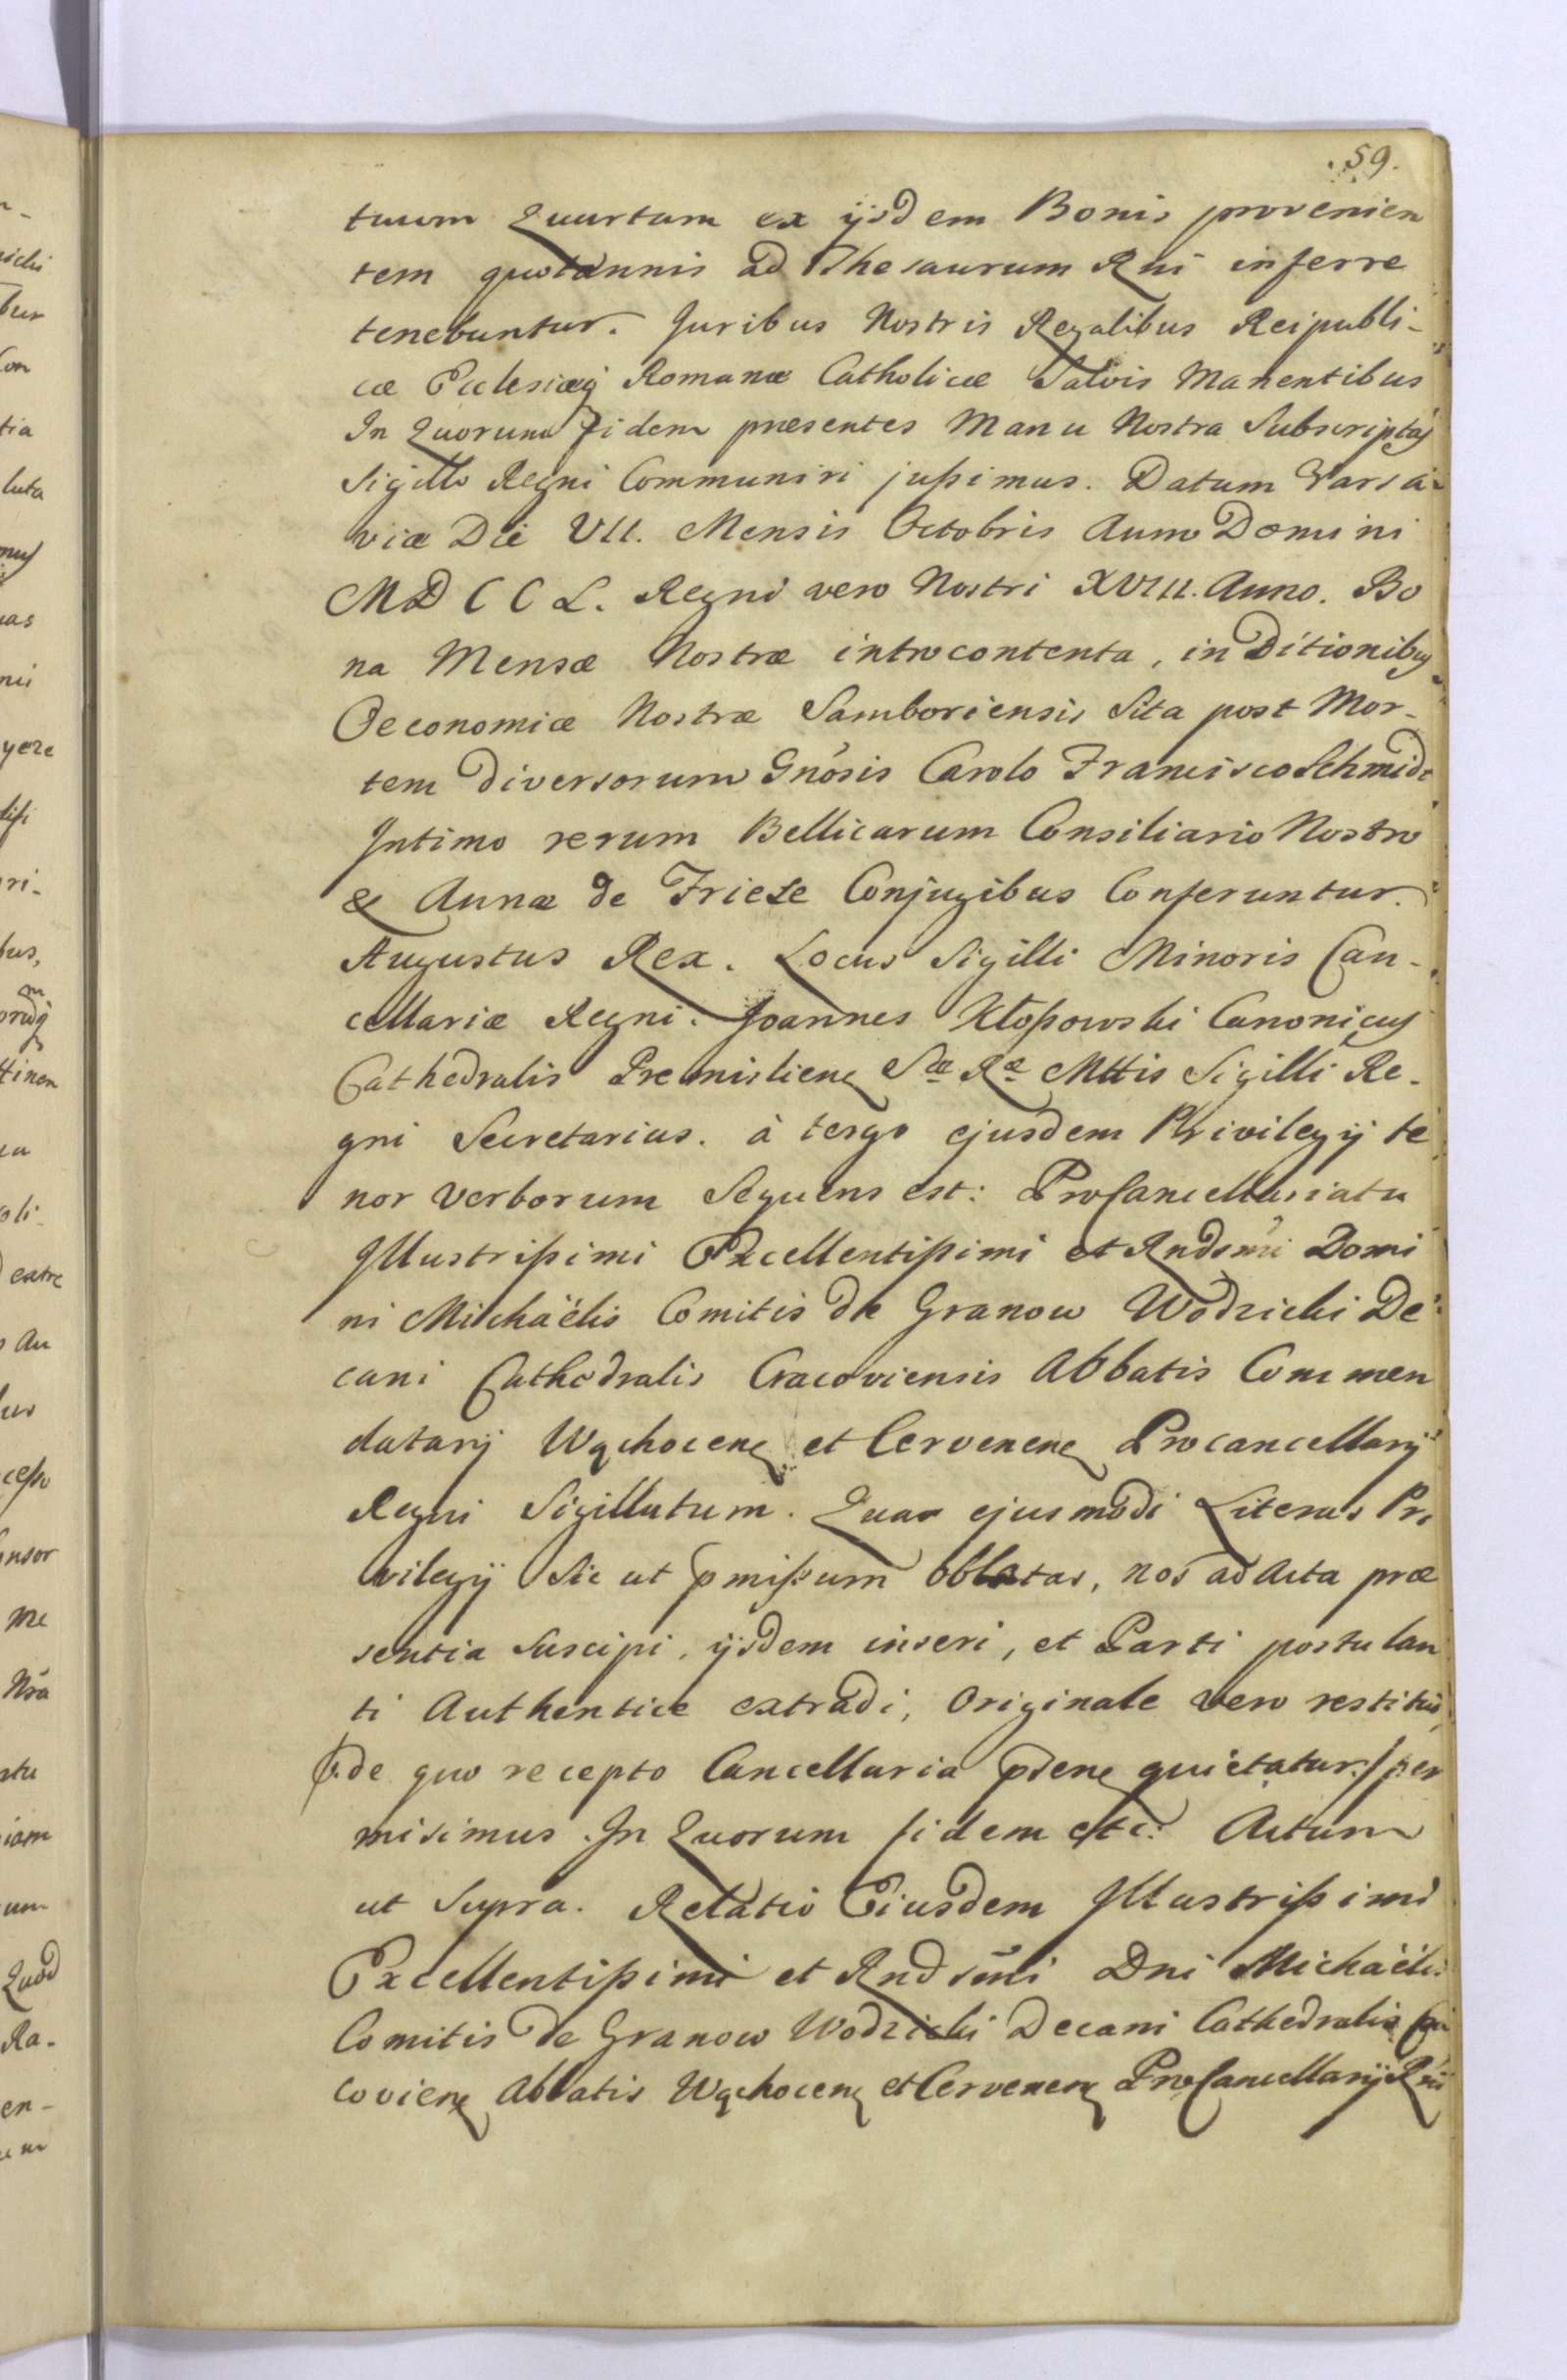 59.
tuum Quartam ex ijsdem Bonis provenien
tem quotannis ad Thesaurum Rni inferre
tenebuntur. Juribus Nostris Regalibus Reipubli-
cæ Ecclesiæq Romanæ Catholicæ Salvis Manentibus
In Quorum fidem præsentes Manu Nostra Subscriptas
Sigillo Regni Communiri jussimus. Datum Varsa-
viæ Die VII. Mensis Octobris Anno Domini
MDCCL. Regni vero Nostri XVIII. Anno. Bo
na Mensæ Nostræ introcontenta, in Ditionibus
Oeconomiæ Nostræ Samboriensis Sita post Mor-
tem diversorum Gnosis Carolo Francisco Schmidt
Intimo rerum Bellicarum Consiliario Nostro
& Annæ de Friese Conjugibus Conferuntur.
Augustus Rex. Locus Sigilli Minoris Can-
cellariæ Regni. Joannes Kłossowski Canonicus
Cathedralis Premislien Sæ Ræ Mttis Sigilli Re-
gni Secretarius. à tergo ejusdem Privilegij te
nor verborum Sequens est: ProCancellariatu
Illustrissimi Excellentissimi et Rndsmi Domi
ni Michaëlis Comitis de Granow Wodzicki De
cani Cathedralis Cracoviensis Abbatis Commen
datarij Wąchocen et Cervenen Procancellarij
Regni Sigillatum. Quas ejusmodi Literas Pri
vilegij Sic ut pmissum oblatas, nos ad Acta præ
sentia suscipi, ijsdem inseri, et Parti postulan
ti Authentice extradi, Originale vero restitui,
de quo recepto Cancellaria pdene quietatur / per
misimus. In Quorum fidem etc: Actum
ut Supra. Relatio Eiusdem Illustrissimi
Excellentissimi et Rndsmi Dni Michaëlis
Comitis de Granow Wodzicki Decani Cathedralis Cra
covien Abbatis Wąchocen et Cervenen ProCancellarij Rni